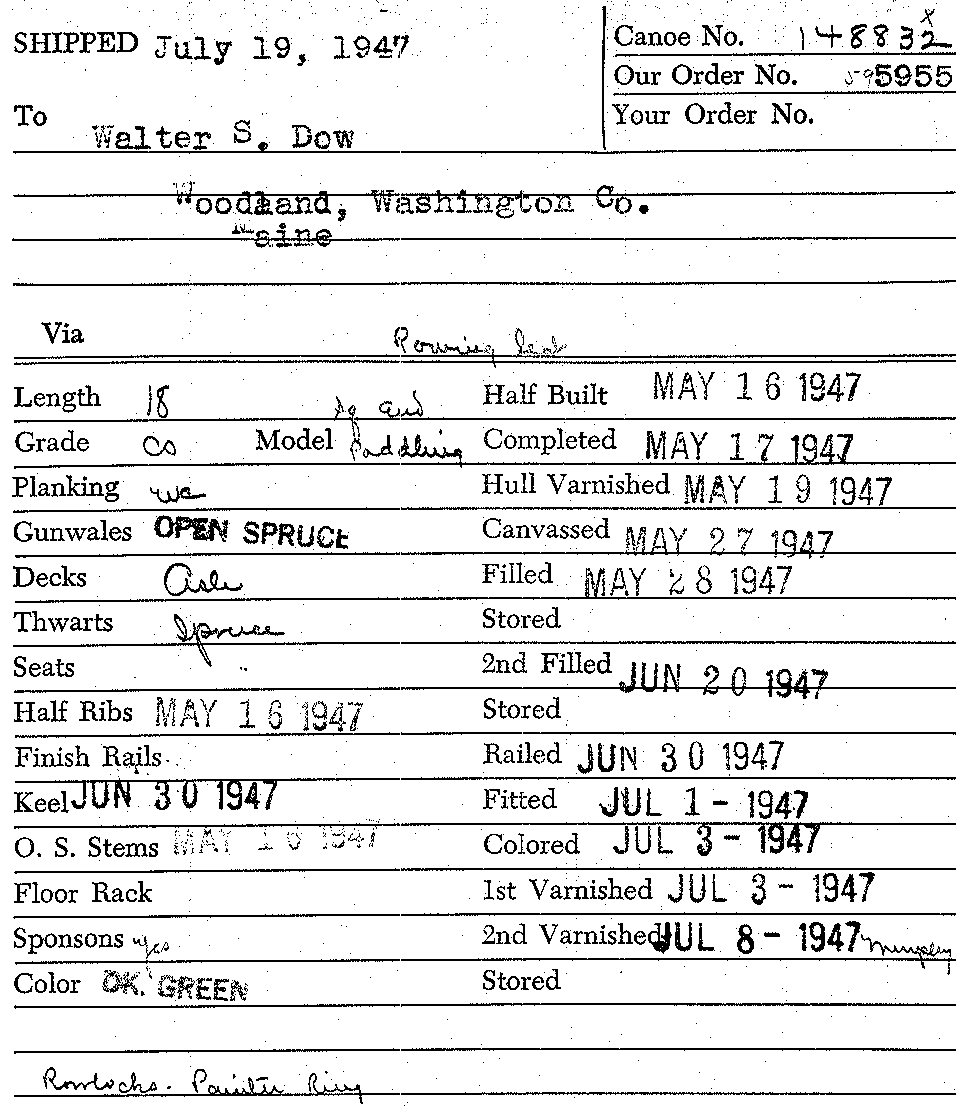 SHIPPED July 19, 1947
Canoe No. 148832
x
Our Order No. 595955
To Walter S. Dow
Your Order No.
Woodland, Washington Co.
Maine
Via Rowing Seat
Length 18
Half Built MAY 16 1947
Grade CO Model Sq end Paddling
Completed MAY 17 1947
Planking wc
Hull Varnished MAY 19 1947
Gunwales OPEN SPRUCE
Canvassed MAY 27 1947
Decks Ash
Filled MAY 28 1947
Thwarts Spruce
Stored
Seats "
2nd Filled JUN 20 1947
Half Ribs MAY 16 1947
Stored
Finish Rails
Railed JUN 30 1947
Keel JUN 30 1947
Fitted JUL 1 - 1947
O. S. Stems MAY 16 1947
Colored JUL 3 - 1947
Floor Rack
1st Varnished JUL 3 - 1947
Sponsons yes
2nd Varnished JUL 8 - 1947
Color DK. GREEN
Stored
Rowlocks. Painter Ring